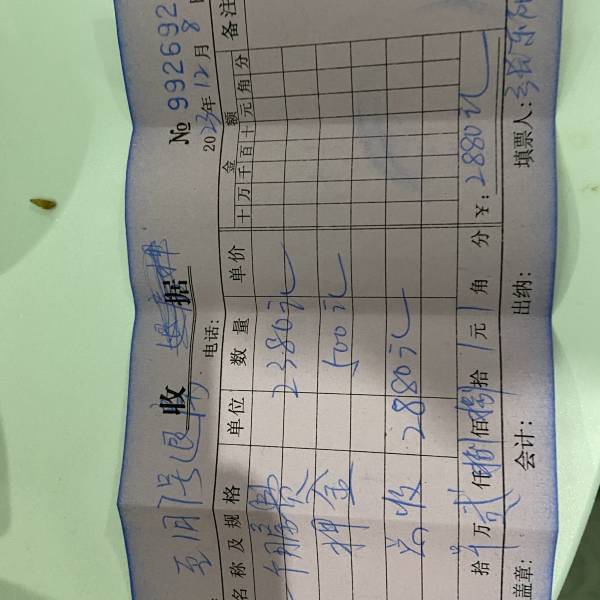 收据
№ 992692
2023年12月8
至 月 1号退
电话:
备注
名称及规格 单位 数量 单价 金额
十万千百十元角分
房费 2380元
押金 500元
总收 2880元
拾 万 贰仟捌佰捌拾 元 角 分 ¥:2880元
盖章: 会计: 出纳: 填票人: